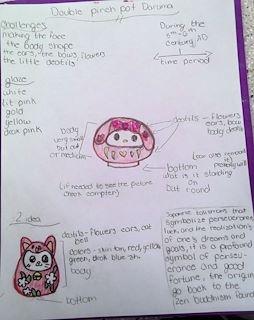 Double pinch pot Daruma
Challenges
making the face
the body shape
the ears, the bows, flowers
the little deatils
During the
5th-6th
century AD
time period
glaze
white
lit pink
gold
yellow
deak pink
deatils - flowers
ears, bow
body deatils
body
very small
but cut
or medium
bottom
what is it standing
on
but round
(if needed to see the picture
check compter)
2 idea
deatils - flowers ears, cat
bell
colors - skin ton, red, yellow
green, drak blue
body
bottom
Japanese talismans that
symbolize perseverance
luck, and the realizations
of one's dreams and
goals, it is a profound
symbol of perseu-
erance and good
fortune, the origin
go back to the
Zen buddhism found